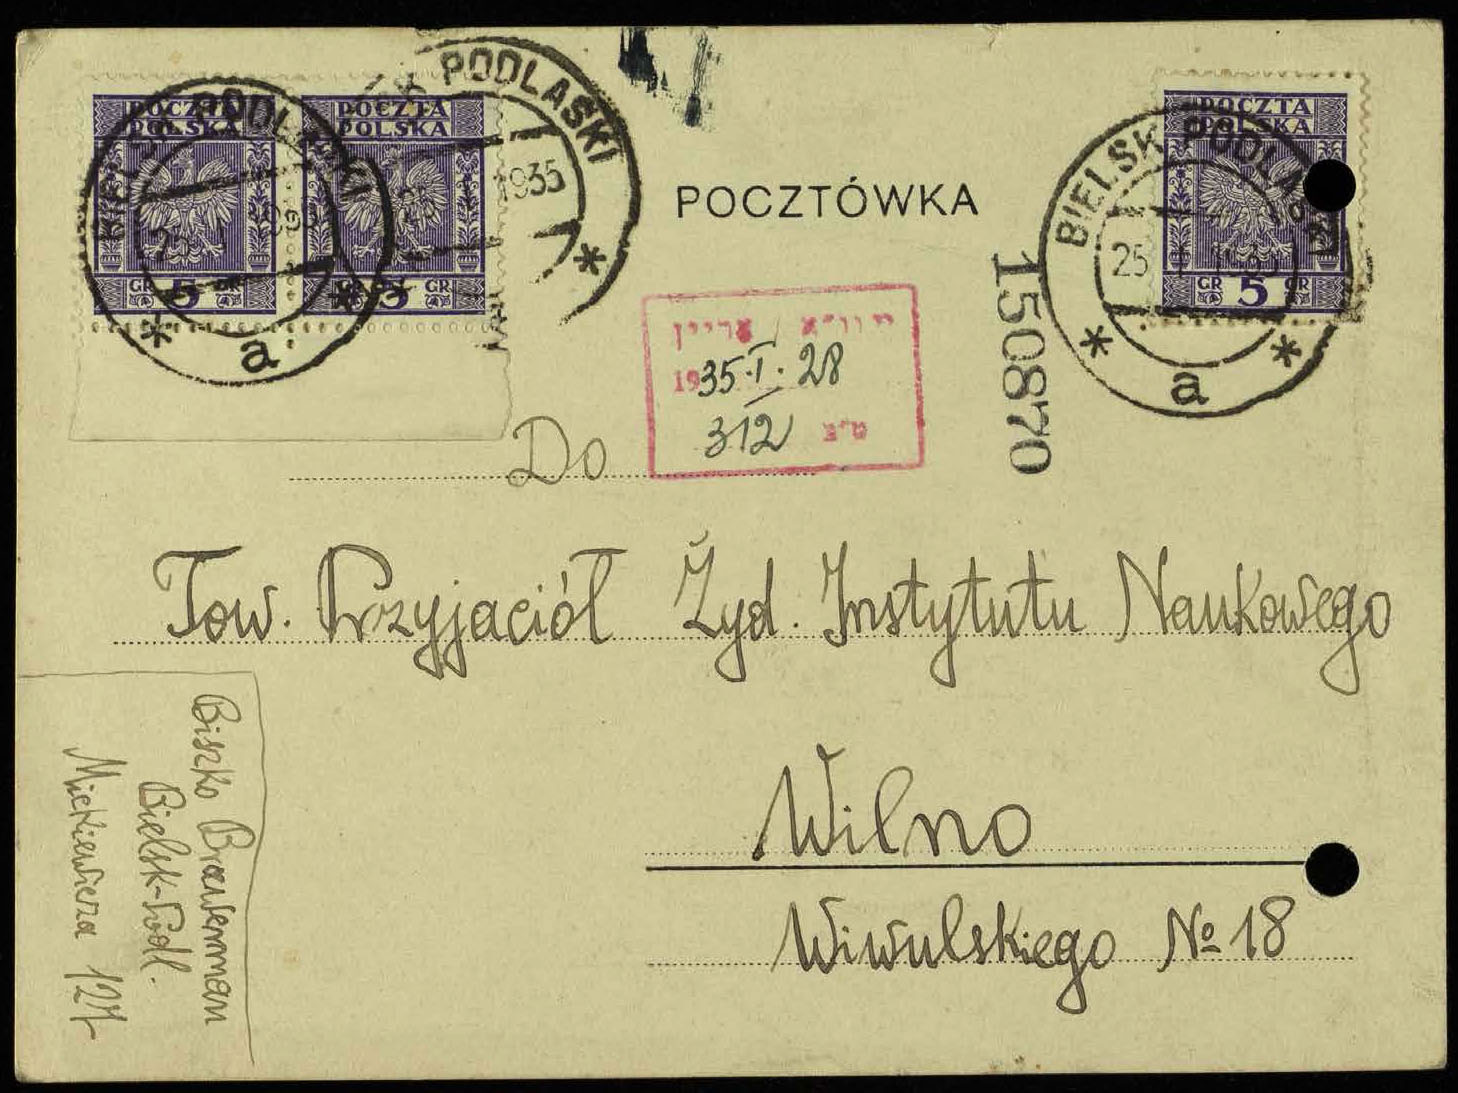 POCZTA
POLSKA
GR 5 GR
POCZTA
POLSKA
GR 5 GR
BIELSK PODLASKI
a
PODLASKI
1935
POCZTÓWKA
POCZTA
POLSKA
GR 5 GR
BIELSK PODLASKI
25
a
ייִוואָ אריין
1935.I.28
312 ט״צ
150870
Do
Tow. Przyjaciół Żyd. Instytutu Naukowego
Wilno
Wiwulskiego № 18
Biszko Brawerman
Bielsk-Podl.
Mickiewicza 127